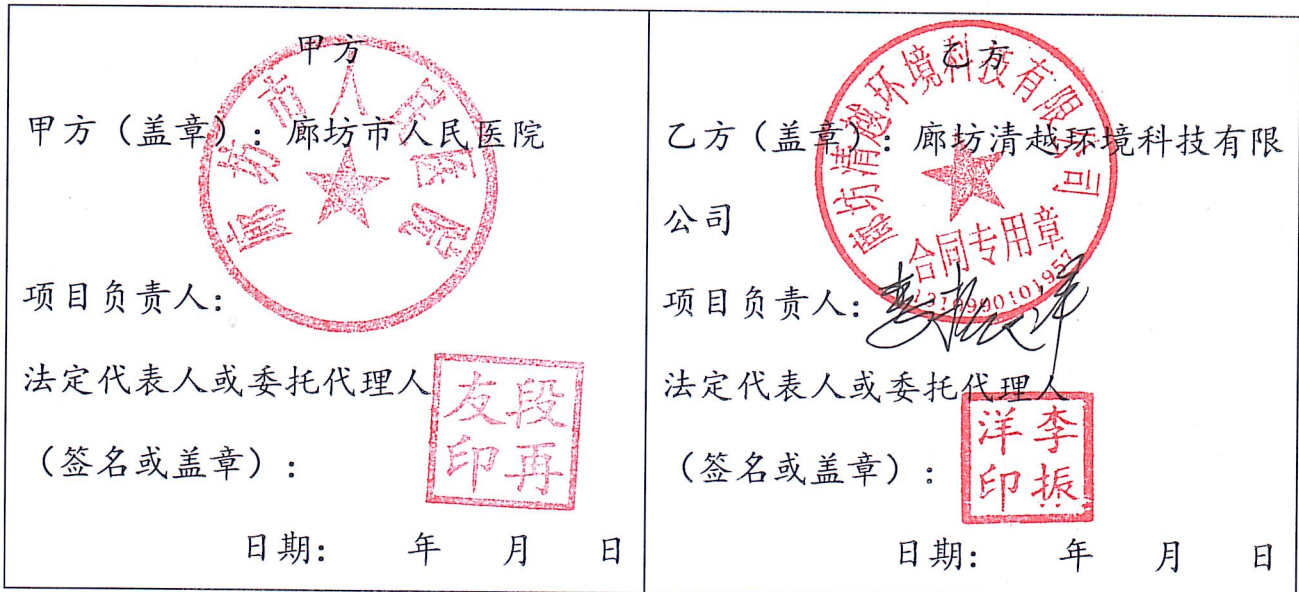 甲方
甲方（盖章）：廊坊市人民医院
廊坊市人民医院
项目负责人：
法定代表人或委托代理人
（签名或盖章）：
段再友印
日期：　　年　　月　　日
乙方
乙方（盖章）：廊坊清越环境科技有限
公司
廊坊清越环境科技有限公司
合同专用章
项目负责人：李振洋
法定代表人或委托代理人
（签名或盖章）：
李振洋印
日期：　　年　　月　　日